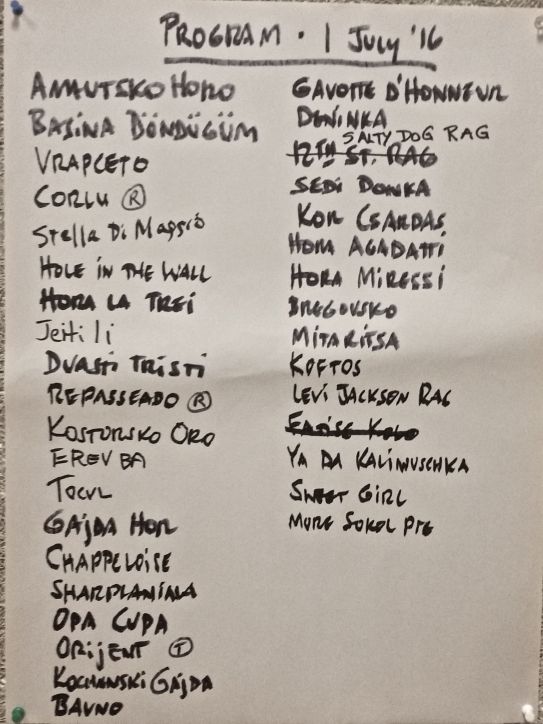 PROGRAM · 1 JULY '16
AMUTSKO HORO
BASINA DÖNDÜGÜM
VRAPCETO
CORLU Ⓡ
Stella Di Maggio
HOLE IN THE WALL
HORA LA TREI
Jeiti li
DVASTI TRISTI
REPASSEADO Ⓡ
KOSTURSKO ORO
EREV BA
TOCUL
GAJDA HOR
CHAPPELOISE
SHARPLANINA
OPA CUPA
ORIJENT Ⓣ
KOCHANSKI GAJDA
BAVNO
GAVOTTE D'HONNEUR
DENINKA
SALTY DOG RAG
12TH ST. RAG
SEDI DONKA
KOR CSARDAS
HORA AGADATTI
HORA MIRESSI
BREGOVSKO
MITARITSA
KOFTOS
LEVI JACKSON RAG
KOLO
YA DA KALINUSCHKA
SWEET GIRL
MORE SOKOL PIE